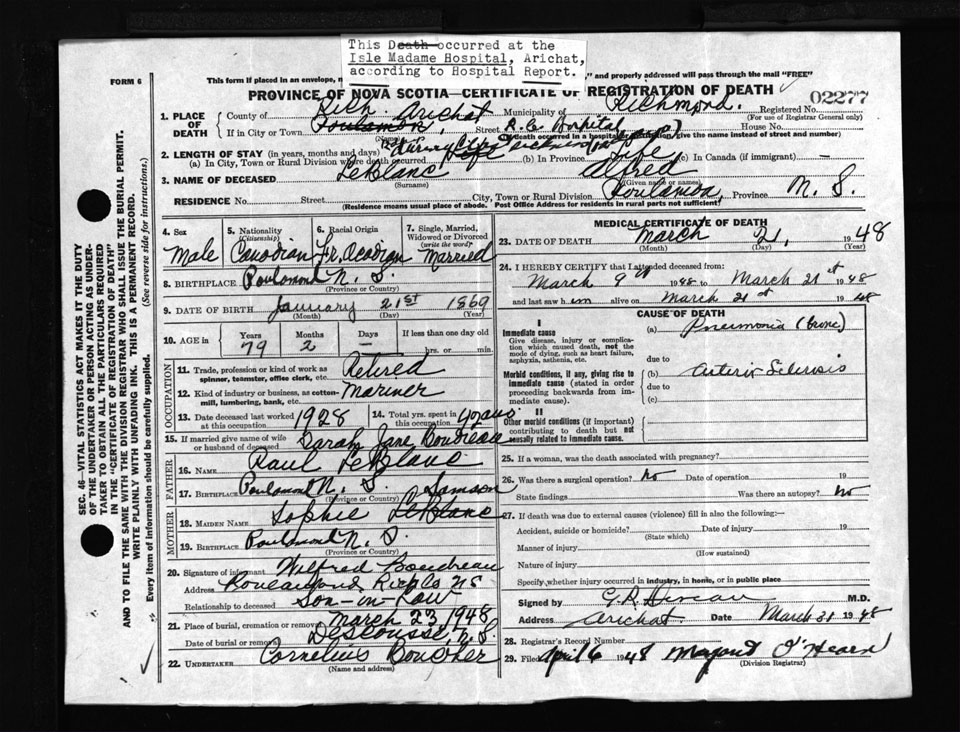 This Death occurred at the
Isle Madame Hospital, Arichat,
according to Hospital Report.
FORM 6
This form if placed in an envelope, " and properly addressed will pass through the mail "FREE"
PROVINCE OF NOVA SCOTIA—CERTIFICATE OF REGISTRATION OF DEATH
02277
1. PLACE OF DEATH
County of Rich. Municipality of Richmond. Registered No.
(For use of Registrar General only)
If in City or Town Poulamon, Arichat Street R.C. Hospital House No.
(If death occurred in a hospital or institution, give the name instead of street and number)
2. LENGTH OF STAY (in years, months and days) during sickness
(a) In City, Town or Rural Division where death occurred Life (b) In Province Life (c) In Canada (if immigrant) —
3. NAME OF DECEASED LeBlanc Alfred
(Surname) (Given name or names)
RESIDENCE No. Street City, Town or Rural Division Poulamon, Province N. S.
(Residence means usual place of abode. Post Office Address for residents in rural parts not sufficient)
4. Sex Male
5. Nationality (Citizenship) Canadian
6. Racial Origin Fr. Acadian
7. Single, Married, Widowed or Divorced (write the word) Married
8. BIRTHPLACE Poulamond N. S.
(Province or Country)
9. DATE OF BIRTH January 21st 1869
(Month) (Day) (Year)
10. AGE in Years 79 Months 2 Days — If less than one day old hrs. or min.
OCCUPATION
11. Trade, profession or kind of work as spinner, teamster, office clerk, etc. Retired
12. Kind of industry or business, as cotton-mill, lumbering, bank, etc. Mariner
13. Date deceased last worked at this occupation 1928
14. Total yrs. spent in this occupation 40 years
15. If married give name of wife or husband of deceased Sarah Jane Boudreau
FATHER
16. NAME Paul LeBlanc
17. BIRTHPLACE Poulamond N. S.
(Province or Country)
MOTHER
18. MAIDEN NAME Sophie Samson LeBlanc
19. BIRTHPLACE Poulamond N. S.
(Province or Country)
20. Signature of informant Wilfred Boudreau
Address Poulamond Rich Co NS
Relationship to deceased Son-in-Law
21. Place of burial, cremation or removal March 23 1948
Date of burial or removal Descousse, N. S.
22. UNDERTAKER Cornelius Boucher
(Name and address)
MEDICAL CERTIFICATE OF DEATH
23. DATE OF DEATH March 21, 1948
(Month) (Day) (Year)
24. I HEREBY CERTIFY that I attended deceased from:
March 9th 1948 to March 21st 1948
and last saw him alive on March 21st 1948
CAUSE OF DEATH
I
Immediate cause
Give disease, injury or complication which caused death, not the mode of dying, such as heart failure, asphyxia, asthenia, etc.
(a) Pneumonia (bronc)
due to
Morbid conditions, if any, giving rise to immediate cause (stated in order proceeding backwards from immediate cause).
(b) Arterio Sclerosis
due to
(c)
II
Other morbid conditions (if important) contributing to death but not causally related to immediate cause.
25. If a woman, was the death associated with pregnancy?
26. Was there a surgical operation? No Date of operation 19
State findings Was there an autopsy? No
27. If death was due to external causes (violence) fill in also the following:—
Accident, suicide or homicide? Date of injury 19
(State which)
Manner of injury
(How sustained)
Nature of injury
Specify whether injury occurred in industry, in home, or in public place
Signed by M.D.
Address Arichat. Date March 31 1948
28. Registrar's Record Number
29. Filed April 6 1948 Margaret O'Hearn
(Division Registrar)
SEC. 46—VITAL STATISTICS ACT MAKES IT THE DUTY
OF THE UNDERTAKER OR PERSON ACTING AS UNDER-
TAKER TO OBTAIN ALL THE PARTICULARS REQUIRED
IN THE "CERTIFICATE OF REGISTRATION OF DEATH"
AND TO FILE THE SAME WITH THE DIVISION REGISTRAR WHO SHALL ISSUE THE BURIAL PERMIT.
WRITE PLAINLY WITH UNFADING INK. THIS IS A PERMANENT RECORD.
Every item of information should be carefully supplied. (See reverse side for instructions.)